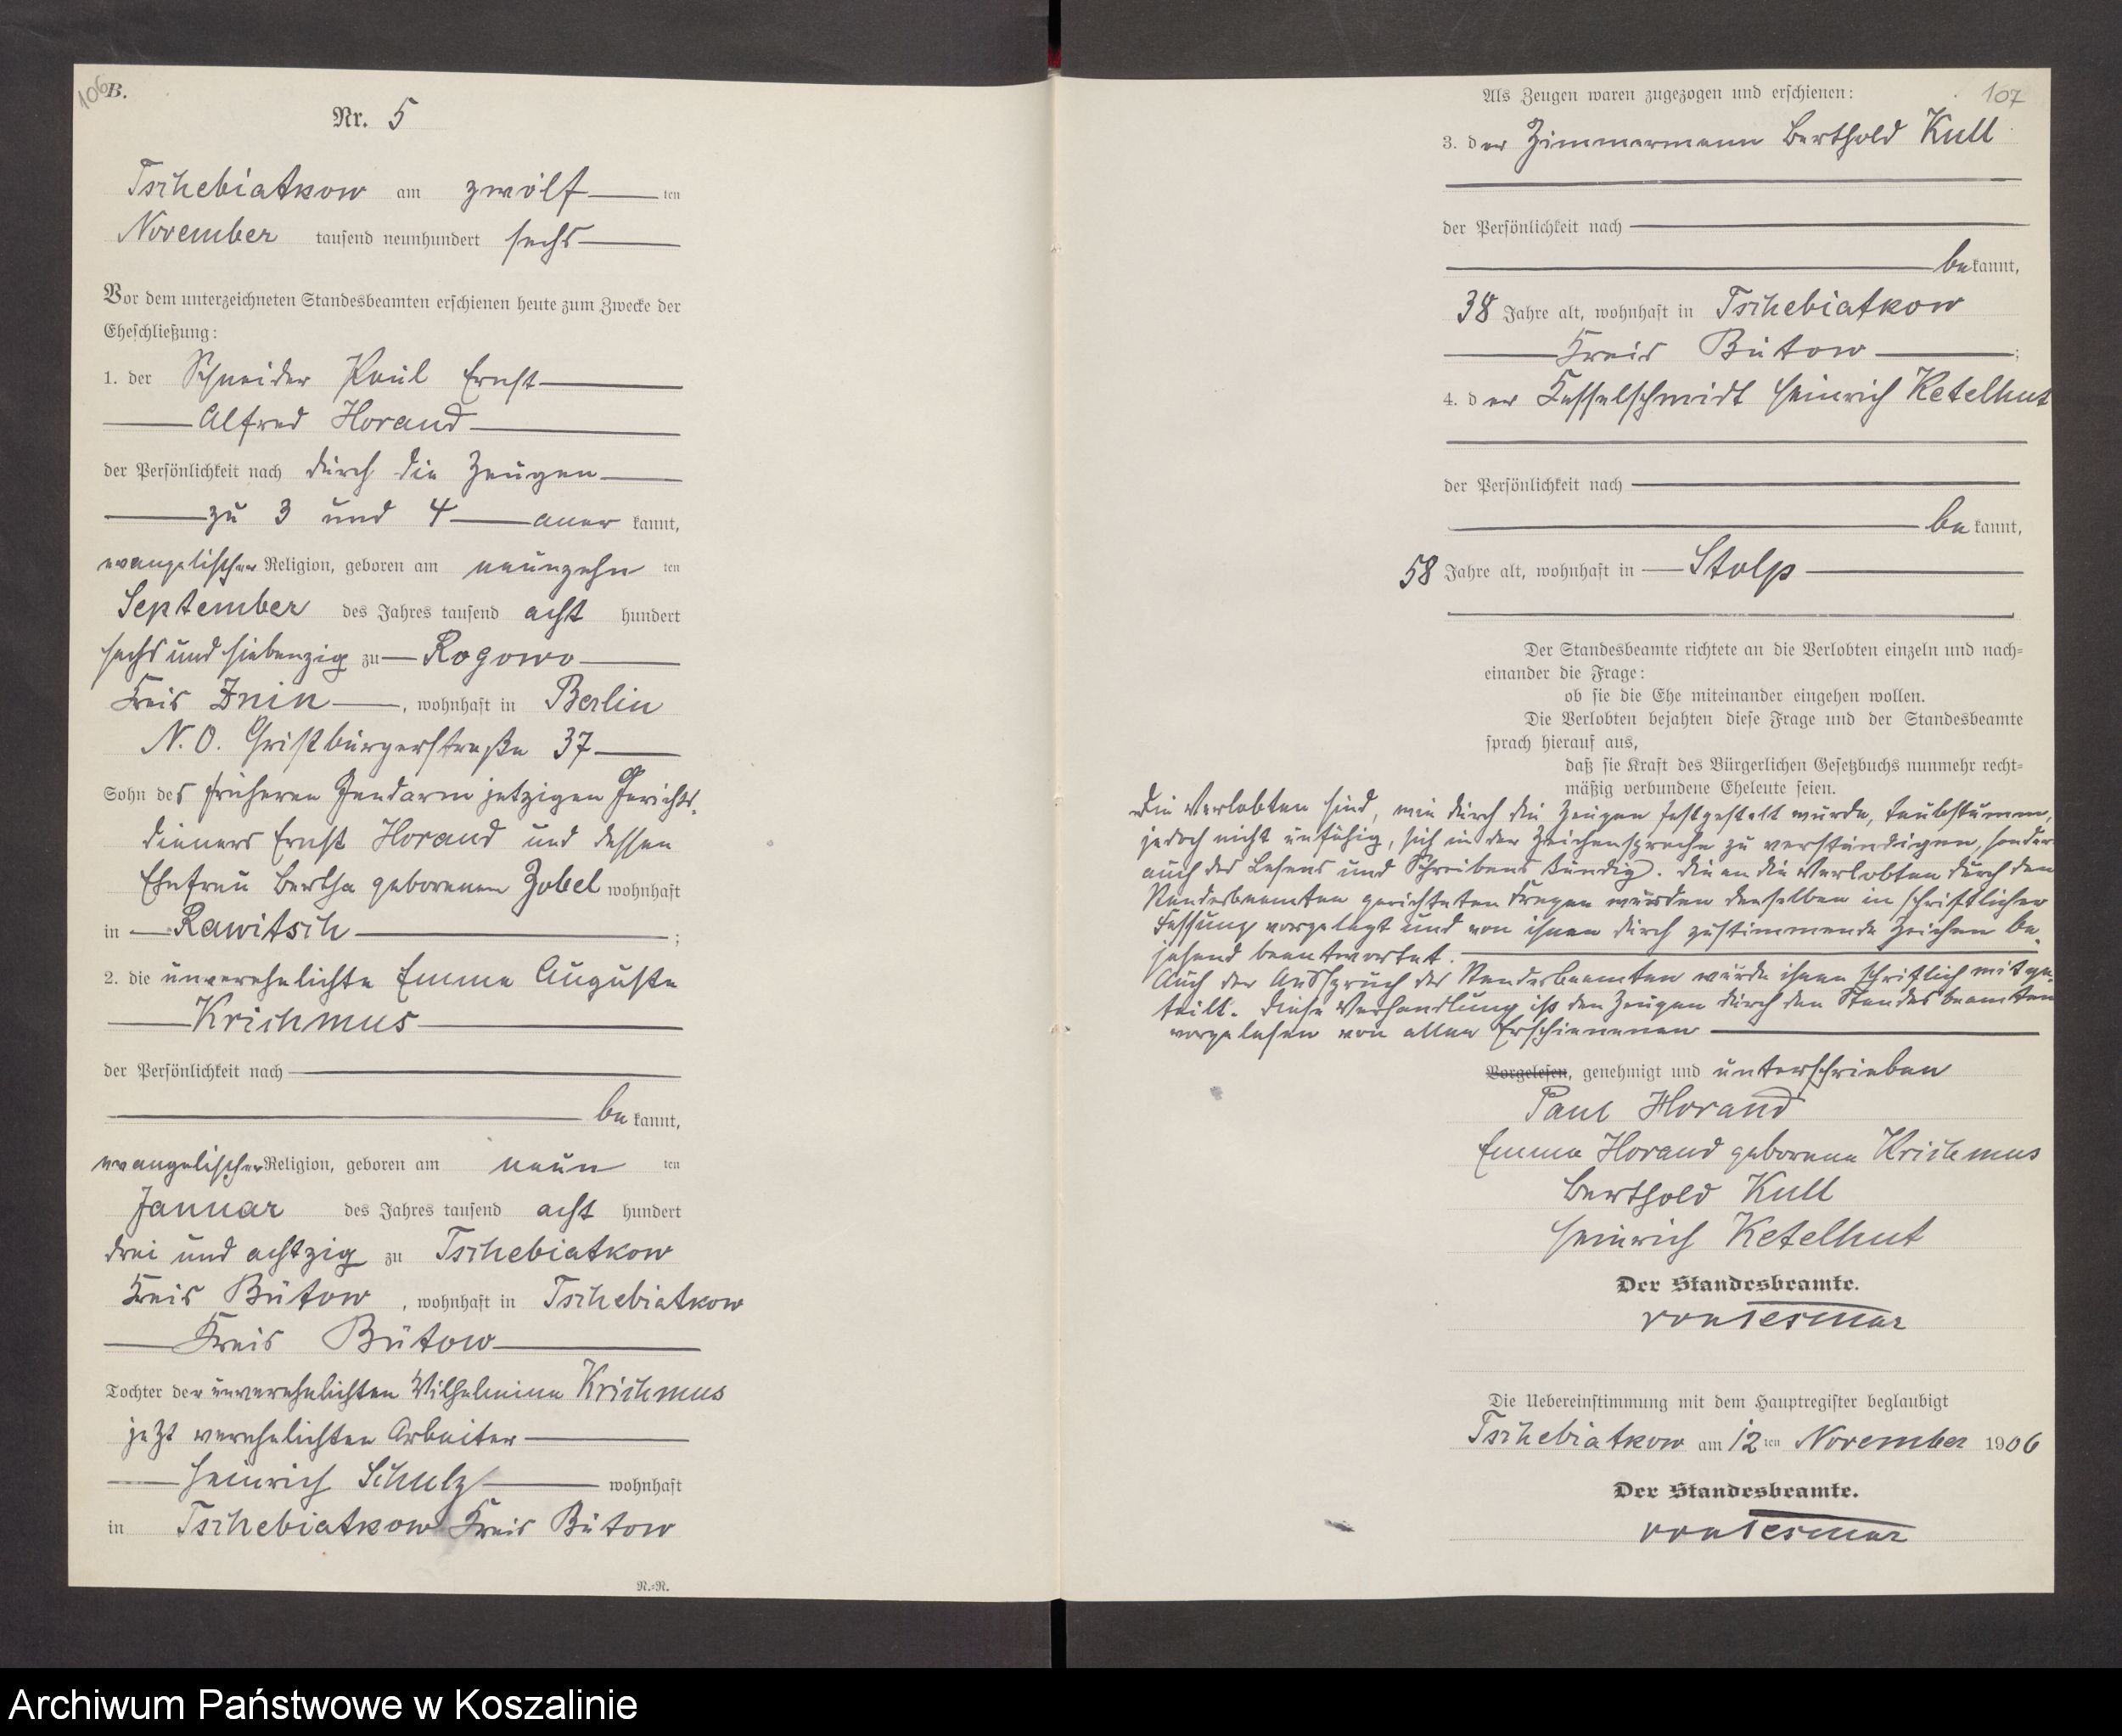 106
B.
Nr. 5
Tschebiatkow am zwölf ten
November tausend neunhundert sechs
Vor dem unterzeichneten Standesbeamten erschienen heute zum Zwecke der
Eheschließung:
1. der Schneider Paul Ernst
Alfred Horand
der Persönlichkeit nach durch die Zeugen
zu 3 und 4 aner kannt,
evangelischer Religion, geboren am neunzehn ten
September des Jahres tausend acht hundert
sechs und siebenzig zu Rogowo
Kreis Znin, wohnhaft in Berlin
N. O. Christburgerstraße 37
Sohn des früheren Gendarm jetzigen Gerichts-
dieners Ernst Horand und dessen
Ehefrau Bertha geborenen Zobel wohnhaft
in Rawitsch ;
2. die unverehelichte Emma Auguste
Krichmus
der Persönlichkeit nach
be kannt,
evangelischer Religion, geboren am neun ten
Januar des Jahres tausend acht hundert
drei und achtzig zu Tschebiatkow
Kreis Bütow, wohnhaft in Tschebiatkow
Kreis Bütow
Tochter der unverehelichten Wilhelmine Krichmus
jetzt verehelichten Arbeiter
Heinrich Schulz wohnhaft
in Tschebiatkow Kreis Bütow
R.=R.
107
Als Zeugen waren zugezogen und erschienen:
3. der Zimmermann Berthold Kull
der Persönlichkeit nach
be kannt,
38 Jahre alt, wohnhaft in Tschebiatkow
Kreis Bütow ;
4. der Kesselschmidt Heinrich Ketelhut
der Persönlichkeit nach
be kannt,
58 Jahre alt, wohnhaft in Stolp
Der Standesbeamte richtete an die Verlobten einzeln und nach=
einander die Frage:
ob sie die Ehe miteinander eingehen wollen.
Die Verlobten bejahten diese Frage und der Standesbeamte
sprach hierauf aus,
daß sie Kraft des Bürgerlichen Gesetzbuchs nunmehr recht=
mäßig verbundene Eheleute seien.
Die Verlobten sind, wie durch die Zeugen festgestellt wurde, taubstumm,
jedoch nicht unfähig, sich in der Zeichensprache zu verständigen, sondern
auch des Lesens und Schreibens kundig. Die an die Verlobten durch den
Standesbeamten gerichteten Fragen wurden denselben in schriftlicher
Fassung vorgelegt und von ihnen durch zustimmende Zeichen be-
jahend beantwortet.
Auch der Ausspruch des Standesbeamten wurde ihnen schriftlich mitge-
teilt. Diese Verhandlung ist den Zeugen durch den Standesbeamten
vorgelesen von allen Erschienenen
Vorgelesen, genehmigt und unterschrieben
Paul Horand
Emma Horand geborene Krichmus
Berthold Kull
Heinrich Ketelhut
Der Standesbeamte.
von Tesmar
Die Uebereinstimmung mit dem Hauptregister beglaubigt
Tschebiatkow am 12 ten November 1906
Der Standesbeamte.
von Tesmar
Archiwum Państwowe w Koszalinie